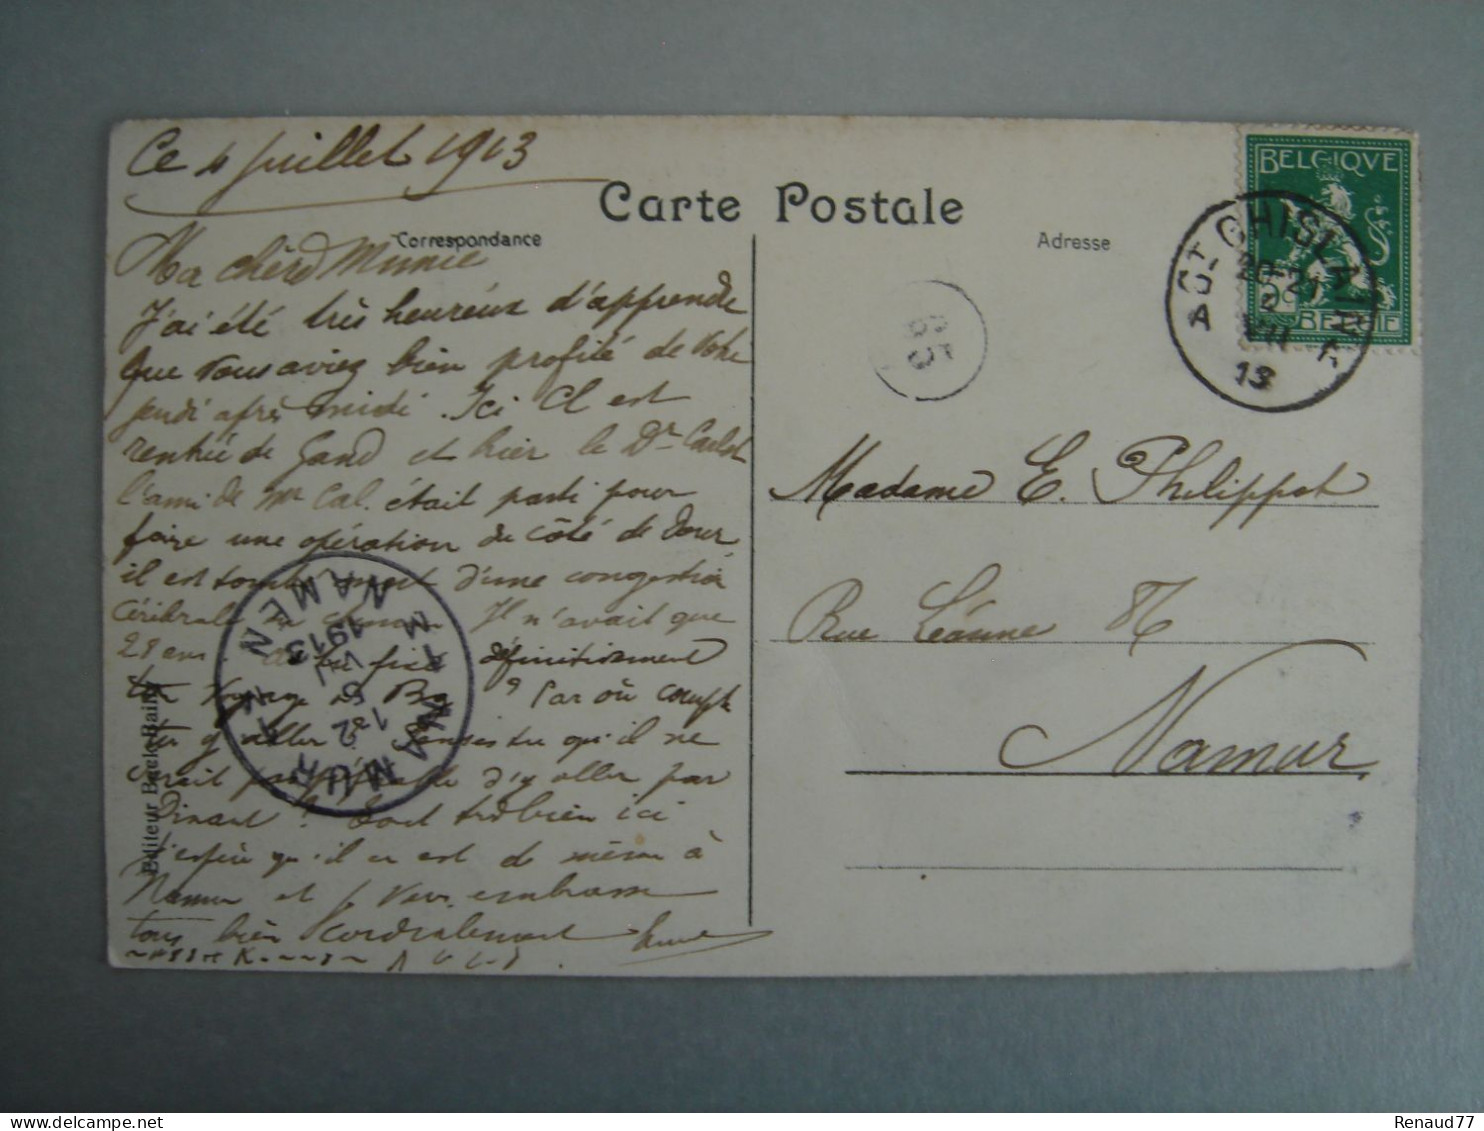 Ce 4 juillet 1913
Carte Postale
Correspondance
Adresse
BELGIQVE
BELGIE
ST GHISLAIN
20-21
VII
13
65
Ma chère Mimie
J'ai été très heureux d'apprendre
que vous aviez bien profité de votre
jeudi après midi. Ici Cl est
rentrée de Gand et hier le Dr
l'ami de Mr Cal. était parti pour
faire une opération du côté de Dour
il est tombé mort d'une congestion
cérébrale Il n'avait que
28 ans définitivement
voyage ? Par où compte
tu y aller ? Penses tu qu'il ne
serait pas préférable d'y aller par
Dinant ? Tout très bien ici
J'espère qu'il en est de même à
Namur et je vous embrasse
tous bien cordialement
Madame E. Philippot
Rue Léanne
Namur
NAMUR
NAMEN
1913
Editeur Baele
Renaud77